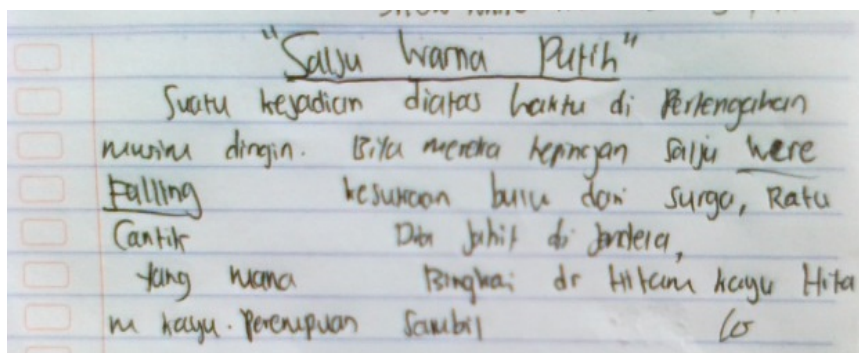 "Salju Warna Putih"
Suatu kejadian diatas waktu di Pertengahan
musim dingin. Bila mereka kepingan Salju were
Falling kesukaan bulu dari surga, Ratu
Cantik Dia Jahit di Jendela,
yang mana Bingkai dr Hitam kayu Hita
m kayu. Perempuan Sambil